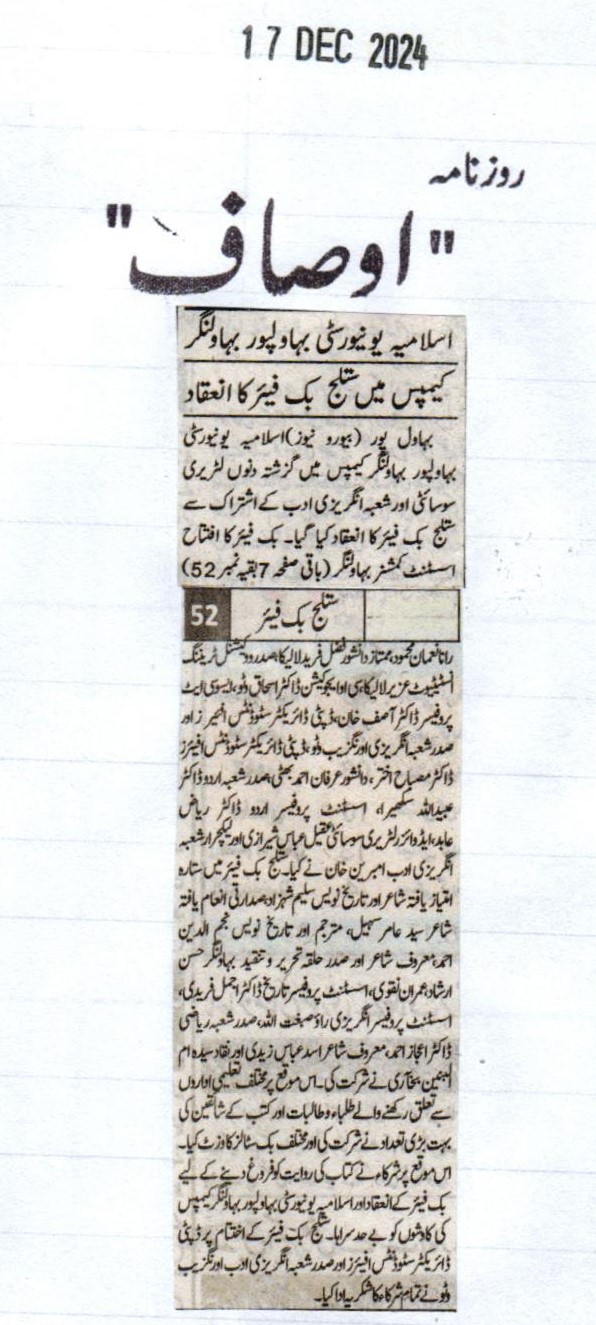 17 DEC 2024
روزنامہ
"اوصاف"
اسلامیہ یونیورسٹی بہاولپور بہاولنگر
کیمپس میں ستلج بک فیئر کا انعقاد
بہاول پور (بیورو نیوز) اسلامیہ یونیورسٹی
بہاولپور بہاولنگر کیمپس میں گزشتہ دنوں لٹریری
سوسائٹی اور شعبہ انگریزی ادب کے اشتراک سے
ستلج بک فیئر کا انعقاد کیا گیا۔ بک فیئر کا افتتاح
اسسٹنٹ کمشنر بہاولنگر (باقی صفحہ 7 بقیہ نمبر 52)
52 ستلج بک فیئر
رانا نعمان محمود، ممتاز دانشور فضل فرید لالیکا، صدر ووکیشنل ٹریننگ
انسٹیٹیوٹ عزیر لالیکا، سی ای او ایجوکیشن ڈاکٹر اسحاق وٹو، ایسوسی ایٹ
پروفیسر ڈاکٹر آصف خان، ڈپٹی ڈائریکٹر سٹوڈنٹس افیئرز اور
صدر شعبہ انگریزی اورنگزیب وٹو، ڈپٹی ڈائریکٹر سٹوڈنٹس افیئرز
ڈاکٹر مصباح اختر، دانشور عرفان احمد بھٹی، صدر شعبہ اردو ڈاکٹر
عبیداللہ سکھیرا، اسسٹنٹ پروفیسر اردو ڈاکٹر ریاض
عابد، ایڈوائزر لٹریری سوسائٹی عقیل عباس شیرازی اور لیکچرار شعبہ
انگریزی ادب امبرین خان نے کیا۔ ستلج بک فیئر میں ستارہ
امتیاز یافتہ شاعر اور تاریخ نویس سلیم شہزاد، صدارتی انعام یافتہ
شاعر سید عامر سہیل، مترجم اور تاریخ نویس نجم الدین
احمد، معروف شاعر اور صدر حلقہ تحریر و تنقید بہاولنگر حسن
ارشاد، عمران نقوی، اسسٹنٹ پروفیسر تاریخ ڈاکٹر اجمل فریدی،
اسسٹنٹ پروفیسر انگریزی راؤ صبغت اللہ، صدر شعبہ ریاضی
ڈاکٹر اعجاز احمد، معروف شاعر اسد عباس زیدی اور نقاد سیدہ ام
البنین بخاری نے شرکت کی۔ اس موقع پر مختلف تعلیمی اداروں
سے تعلق رکھنے والے طلباء و طالبات اور کتب کے شائقین کی
بہت بڑی تعداد نے شرکت کی اور مختلف بک سٹالز کا وزٹ کیا۔
اس موقع پر شرکاء نے کتاب کی روایت کو فروغ دینے کے لیے
بک فیئر کے انعقاد اور اسلامیہ یونیورسٹی بہاولپور بہاولنگر کیمپس
کی کاوشوں کو بے حد سراہا۔ ستلج بک فیئر کے اختتام پر ڈپٹی
ڈائریکٹر سٹوڈنٹس افیئرز اور صدر شعبہ انگریزی ادب اورنگزیب
وٹو نے تمام شرکاء کا شکریہ ادا کیا۔